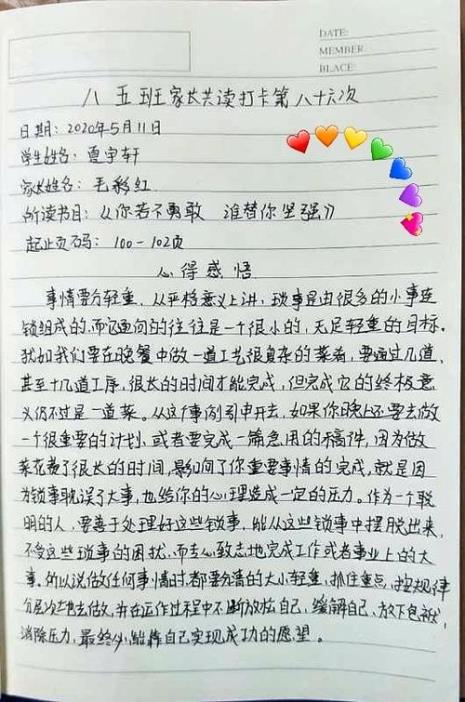 DATE:
MEMBER:
BLACE:
八五班家长共读打卡第八十六次
日期：2020年5月11日
学生姓名：夏宇轩
家长姓名：毛彩红
所读书目：《你若不勇敢 谁替你坚强》
起止页码：100-102页
心得感悟
事情要分轻重，从严格意义上讲，琐事是由很多的小事连
锁组成的，而它通向的往往是一个很小的，无足轻重的目标。
犹如我们要在晚餐中做一道工艺很复杂的菜肴，要通过几道，
甚至十几道工序，很长的时间才能完成，但完成它的终极意
义仍不过是一道菜。从这个事例引申开去，如果你晚上还要去做
一个很重要的计划，或者要完成一篇急用的稿件，因为做
菜花费了很长的时间，影响了你重要事情的完成，就是因
为锁事耽误了大事，也给你的心理造成一定的压力。作为一个聪
明的人，要善于处理好这些锁事，能从这些锁事中摆脱出来，
不受这些琐事的困扰，而专心致志地完成工作或者事业上的大
事，所以说做任何事情时，都要分清的大小轻重，抓住重点，按规律
分层次去做，并在运作过程中不断放松自己，缓解自己，放下包袱，
消除压力，最终必能靠自己实现成功的愿望。